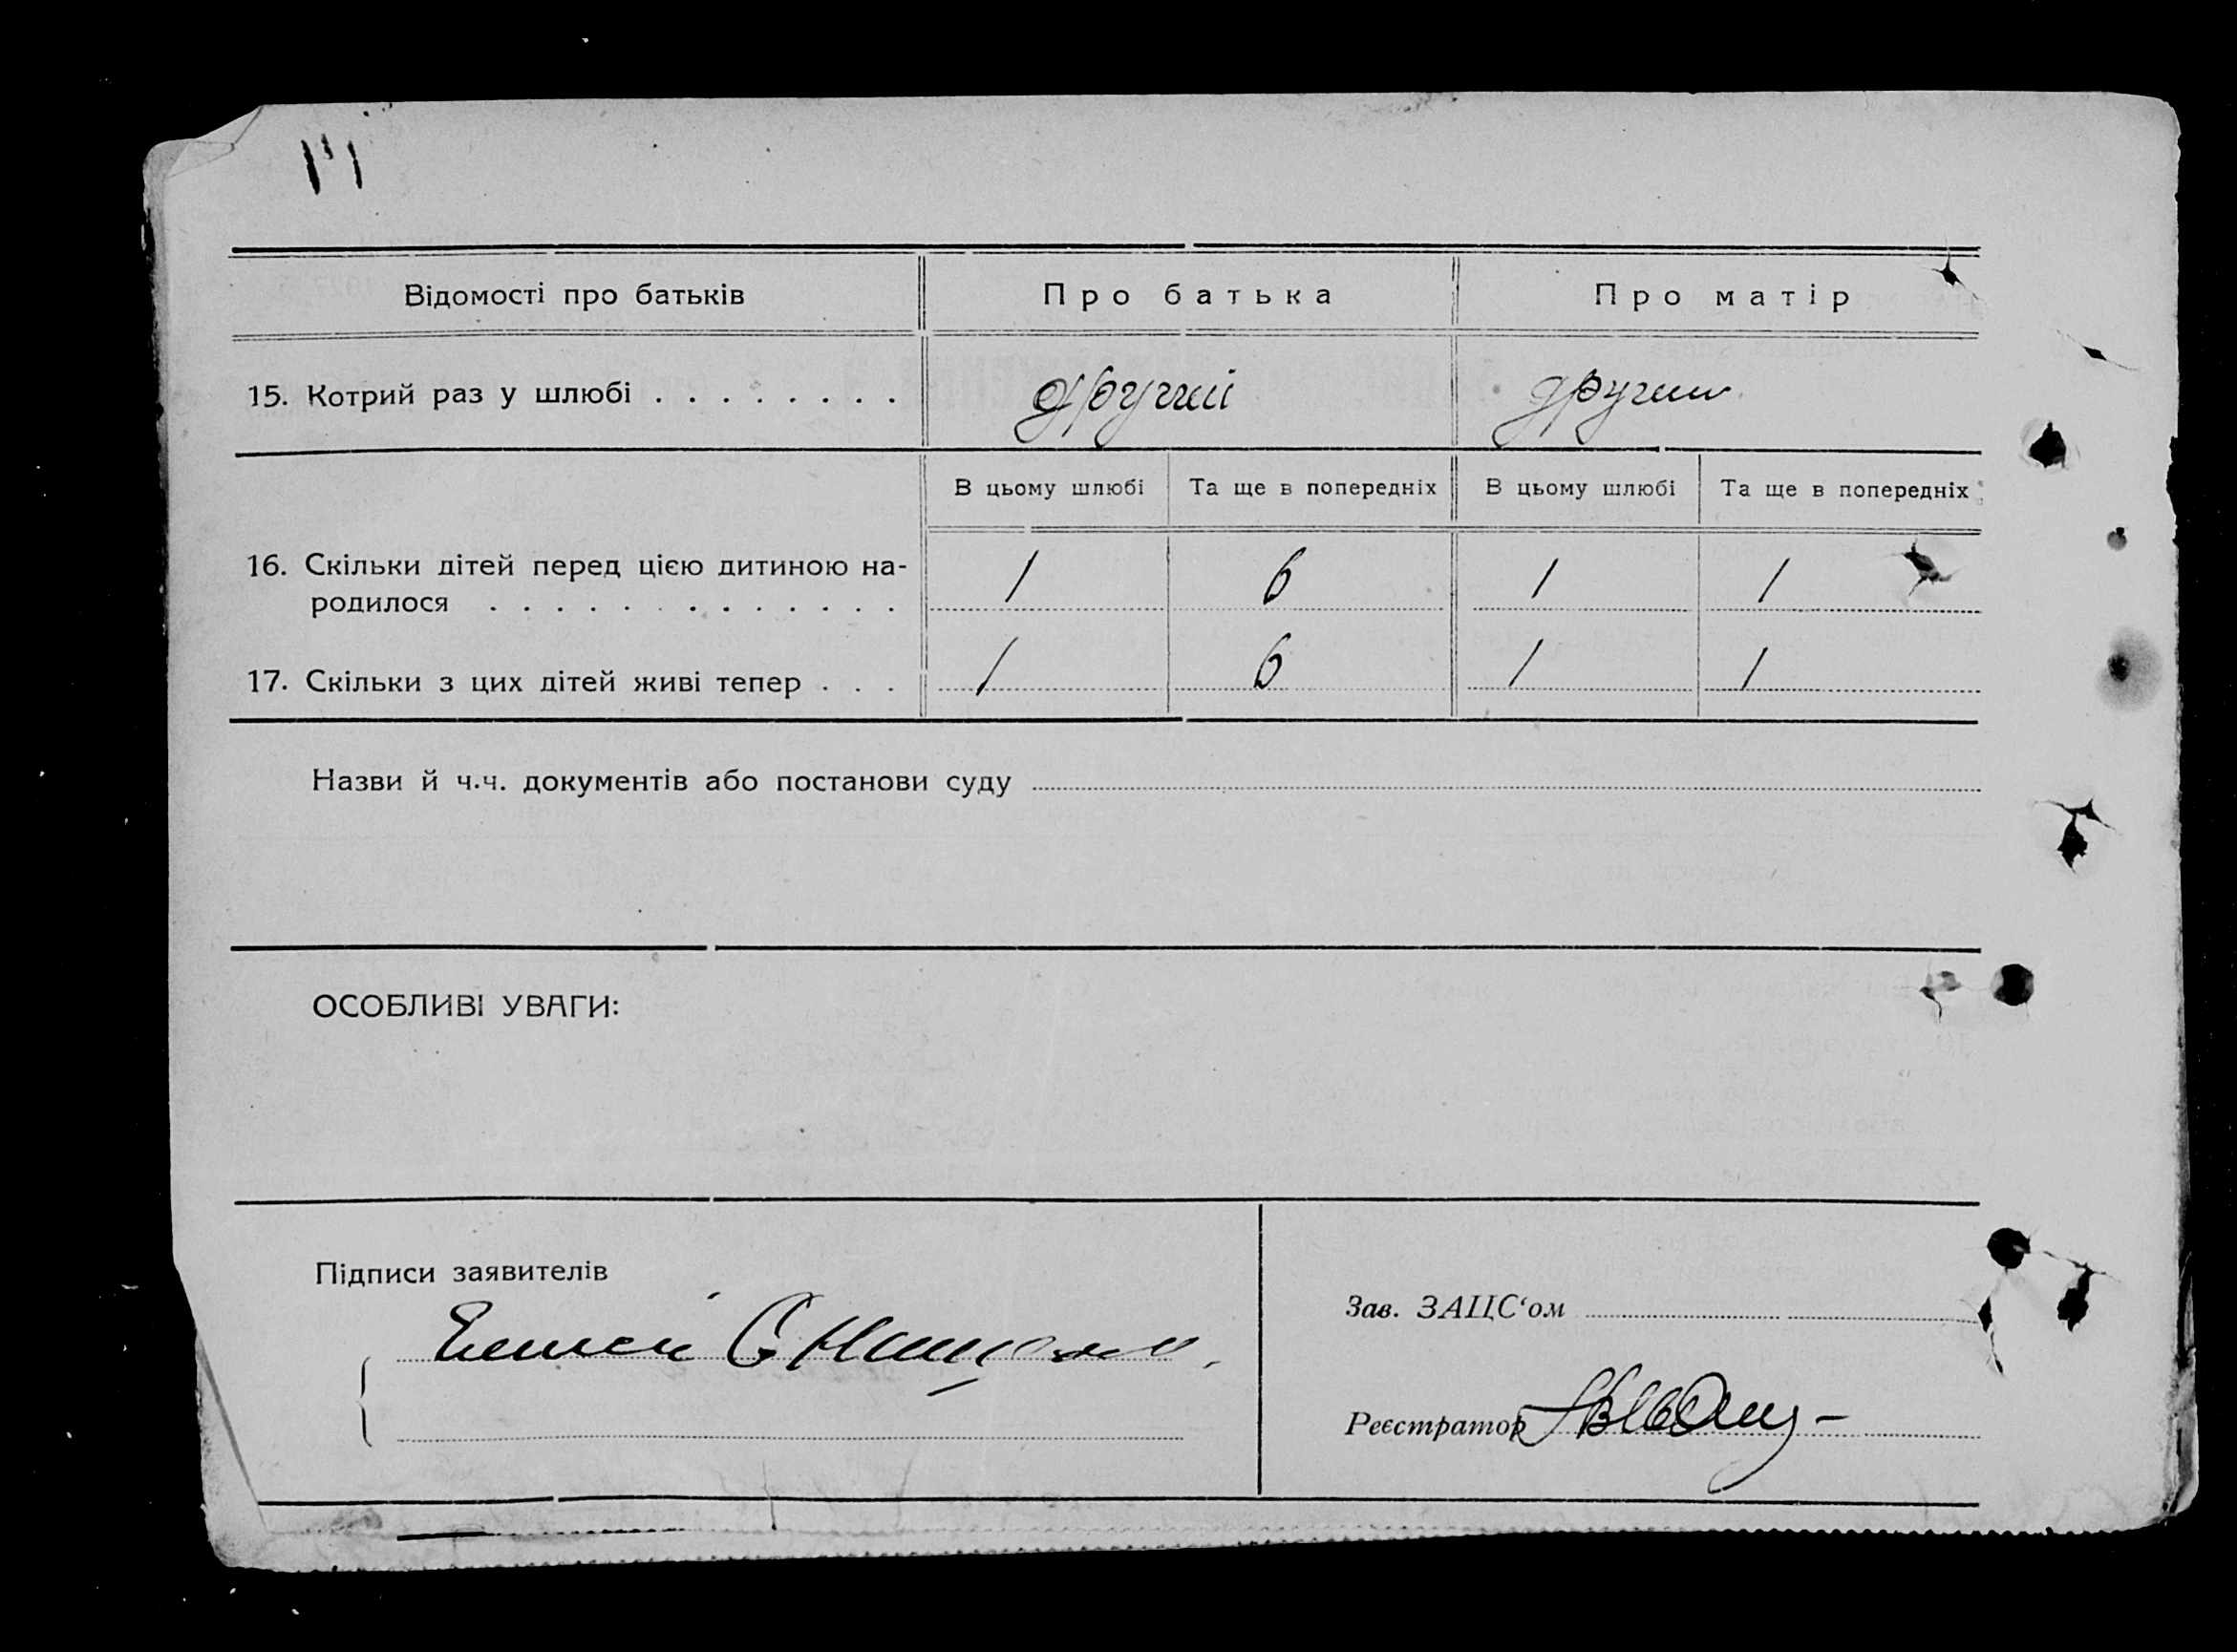 Відомості про батьків
Про батька
Про матір
15. Котрий раз у шлюбі . . . . . . . .
другий
другий
В цьому шлюбі
Та ще в попередніх
В цьому шлюбі
Та ще в попередніх
16. Скільки дітей перед цією дитиною на-
родилося . . . . . . . . . . . . .
1
6
1
1
17. Скільки з цих дітей живі тепер . . .
1
6
1
1
Назви й ч.ч. документів або постанови суду
ОСОБЛИВІ УВАГИ:
Підписи заявителів
Зав. ЗАЦС'ом
Реєстратор